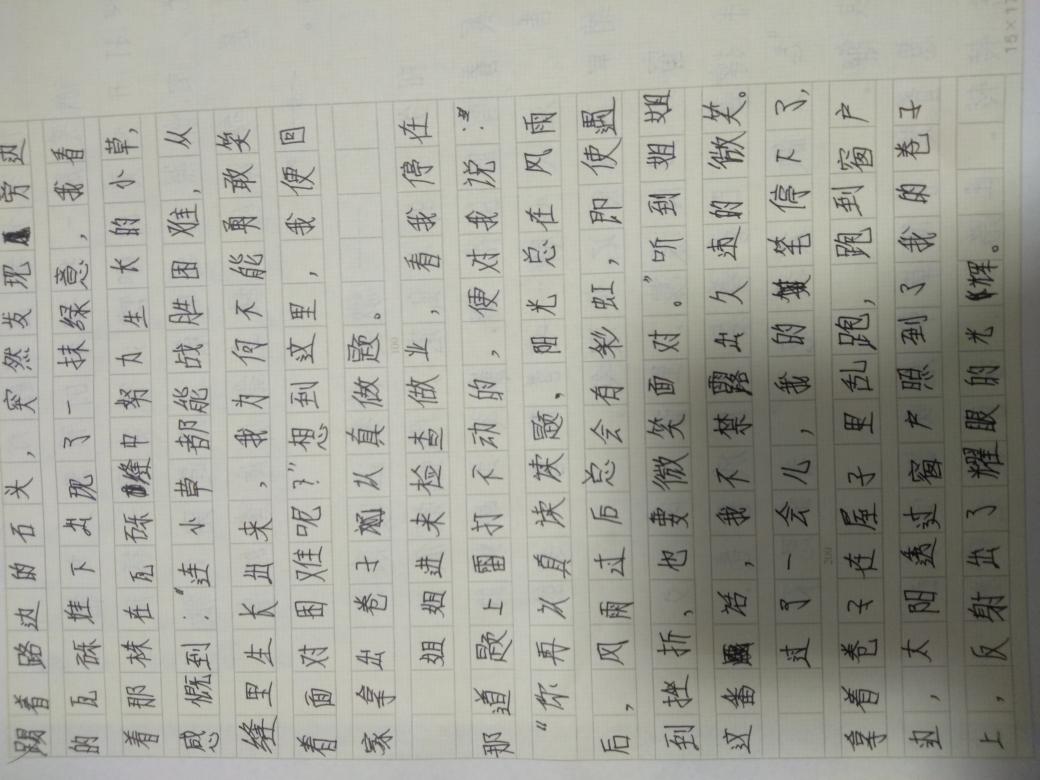 踢着路边的石头，突然发现旁边
的瓦砾堆下出现了一抹绿意，我看
着那株在瓦砾缝中努力生长的小草，
感慨到：“连小草都能战胜困难，从
缝里生长出来，我为何不能勇敢笑
着面对困难呢？”想到这里，我便回
家拿出卷子认真做题。
姐姐进来检查做业，看我停在
那道题上雷打不动的，便对我说：“
“你再认真读读题、阳光总在风雨
后，风雨过后总会有彩虹，即使遇
到挫折，也要微笑面对。”听到姐姐
这番话，我不禁露出久违的微笑。
过了一会儿，我的笔停下了，
拿着卷子在屋子里乱跑，跑到窗户
边，太阳透过窗户照到了我的卷子
上，反射出了耀眼的光辉。
100
200
15×1